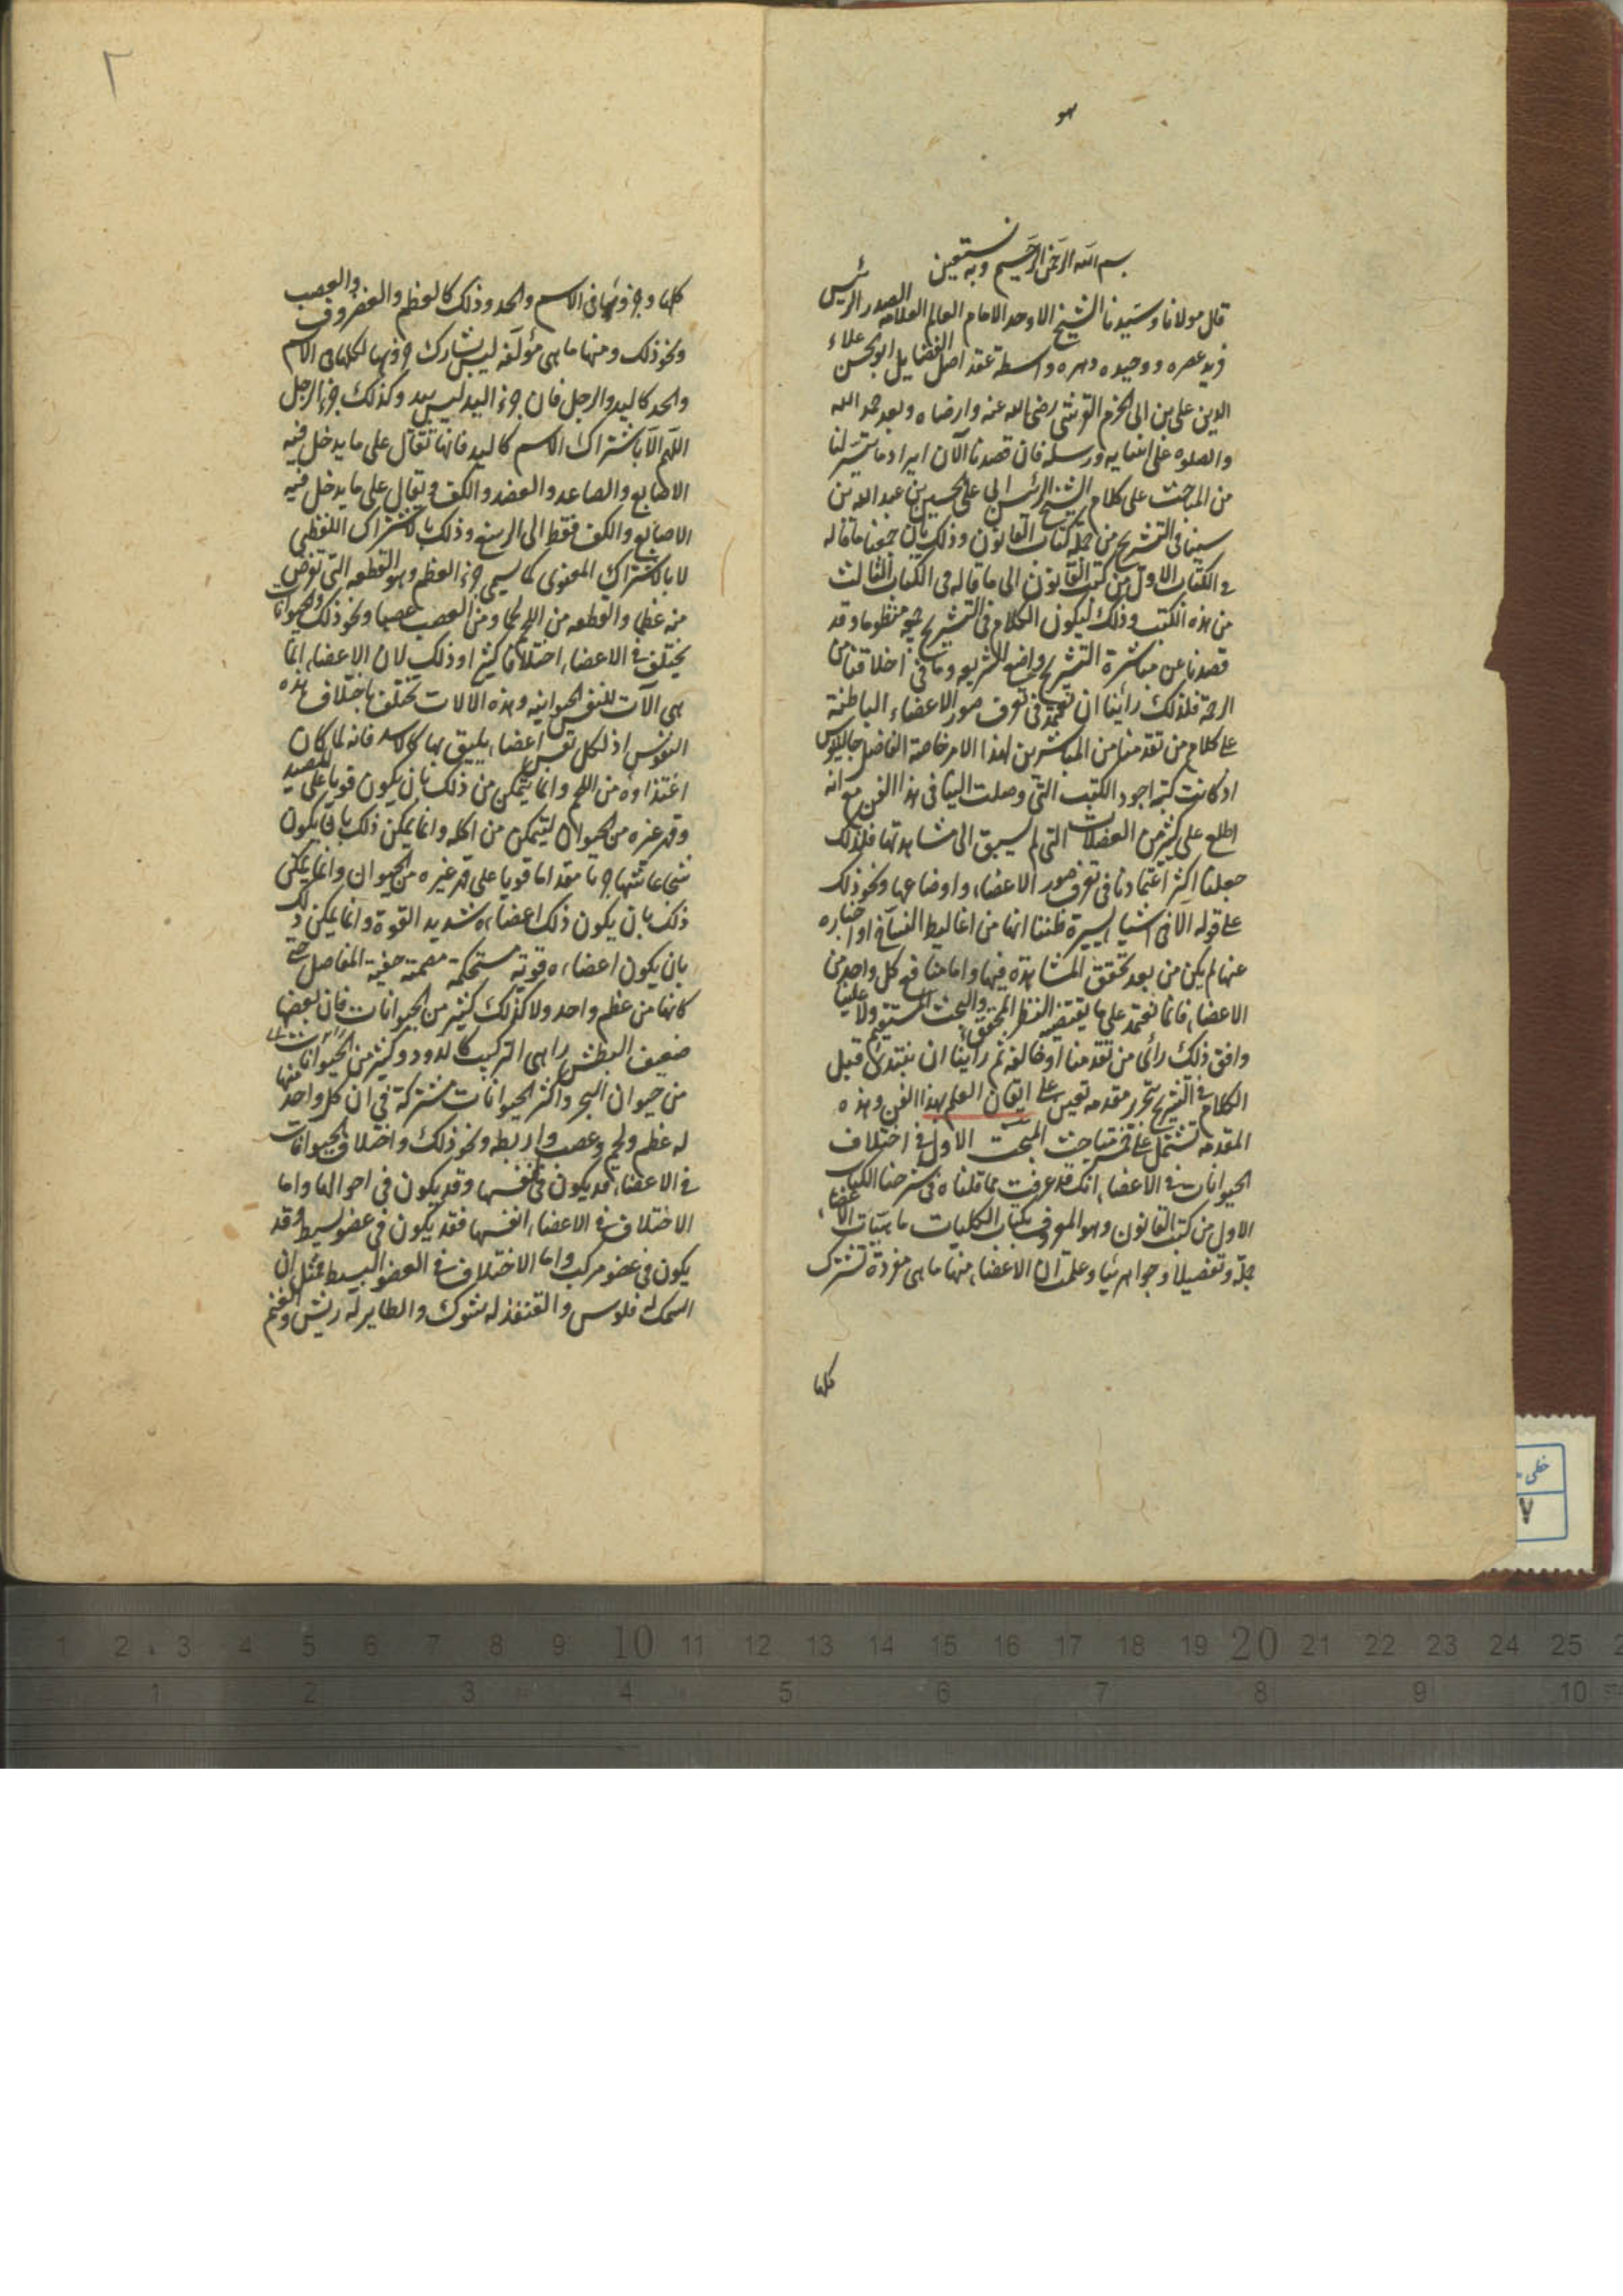 هو
بسم الله الرحمن الرحيم وبه نستعين
قال مولانا وسيدنا الشيخ الاوحد الامام العالم العلامه الصدر الرئيس
فريد عصره ووحيد دهره واسطة عقد اصل الفضايل ابو الحسن علاء
الدين على بن ابى الحزم القرشى رضى الله عنه وارضاه وبعد حمد الله
والصلوه على انبيايه ورسله فان قصدنا الآن ايراد ما تيسر لنا
من المباحث على كلام الشيخ الرئيس ابى على الحسين بن عبد الله بن
سينا فى التشريح من جملة كتاب القانون وذلك بان جمعنا ما قاله
فى الكتاب الاول من كتب القانون الى ما قاله فى الكتاب الثالث
من هذه الكتب وذلك ليكون الكلام فى التشريح جميعه منظوما وقد
قصدنا عن مباشرة التشريح وازع الشريعه وما فى اخلاقنا من
الرحمة فلذلك رأينا ان نعتمد فى تعرف صور الاعضاء الباطنة
على كلام من تقدمنا من المباشرين لهذا الامر خاصة الفاضل جالينوس
اذ كانت كتبه اجود الكتب التى وصلت الينا فى هذا الفن مع انه
اطلع على كثير من العضلات التى لم يسبق الى مشاهدتها فلذلك
جعلنا اكثر اعتمادنا فى تعرف صور الاعضاء واوضاعها ونحو ذلك
على قوله الا فى اشياء يسيرة ظننا انها من اغاليط النساخ او اخباره
عنها لم يكن من بعد تحقق المشاهدة فيها واما منافع كل واحد من
الاعضاء فانما نعتمد على ما يقتضيه النظر المحقق والبحث المستقيم ولا علينا
وافق ذلك رأى من تقدمنا او خالفه ثم رأينا ان نبتدئ قبل
الكلام فى التشريح بتحرير مقدمه تعين على اتقان العلم بهذا الفن وهذه
المقدمه تشتمل على خمسة مباحث المبحث الاول فى اختلاف
الحيوانات فى الاعضاء انك قد عرفت مما قلناه فى شرحنا الكتاب
الاول من كتب القانون وهو المعروف بكتاب الكليات ماهيات الاعضاء
جملة وتفصيلا وجواهرها وعلمت ان الاعضاء منها ما هى مفردة تشترك
كلها
٢
كلها وجزؤها فى الاسم والحد وذلك كالعظم والغضروف والعصب
ونحو ذلك ومنها ما هى مؤلفه ليس يشارك جزؤها لكلها فى الاسم
والحد كاليد والرجل فان جزء اليد ليس بيد وكذلك جزء الرجل
اللهم الا باشتراك الاسم كاليد فانها تقال على ما يدخل فيه
الاصابع والساعد والعضد والكف وتقال على ما يدخل فيه
الاصابع والكف فقط الى الرسغ وذلك بالاشتراك اللفظى
لا بالاشتراك المعنوى كما يسمى جزء العظم وهو القطعه التى تفرض
منه عظما والقطعه من اللحم لحما ومن العصب عصبا ونحو ذلك والحيوانات
يختلف فى الاعضاء اختلافا كثيرا وذلك لان الاعضاء انما
هى آلات للنفس الحيوانيه وهذه الالات تختلف باختلاف هذه
النفوس اذ لكل نفس اعضاء يليق بها كالاسد فانه لما كان
اغتذاؤه من اللحم وانما يتمكن من ذلك بان يكون قويا على الصيد
وقهر غيره من الحيوان ليتمكن من اكله وانما يمكن ذلك بان يكون
شجاعا شهما جريا مقداما قويا على قهر غيره من الحيوان وانما يمكن
ذلك بان يكون ذلك اعضاءه شديد القوة وانما يمكن ذلك
بان يكون اعضاءه قوية مستحكمة مصمتة خفية المفاصل حتى
كانها من عظم واحد ولا كذلك كثير من الحيوانات فان بعضها
ضعيف البطش واهى التركيب كالدود وكثير من الحيوانات
من حيوان البحر واكثر الحيوانات مشتركة فى ان كل واحد منها
له عظم ولحم وعصب واربطه ونحو ذلك واختلاف الحيوانات
فى الاعضاء قد يكون فى انفسها وقد يكون فى احوالها واما
الاختلاف فى الاعضاء انفسها فقد يكون فى عضو بسيط وقد
يكون فى عضو مركب واما الاختلاف فى العضو البسيط فمثل ان
السمك له فلوس والقنفذ له شوك والطاير له ريش والغنم
خطى
٧
1 2 3 4 5 6 7 8 9 10 11 12 13 14 15 16 17 18 19 20 21 22 23 24 25
1 2 3 4 5 6 7 8 9 10